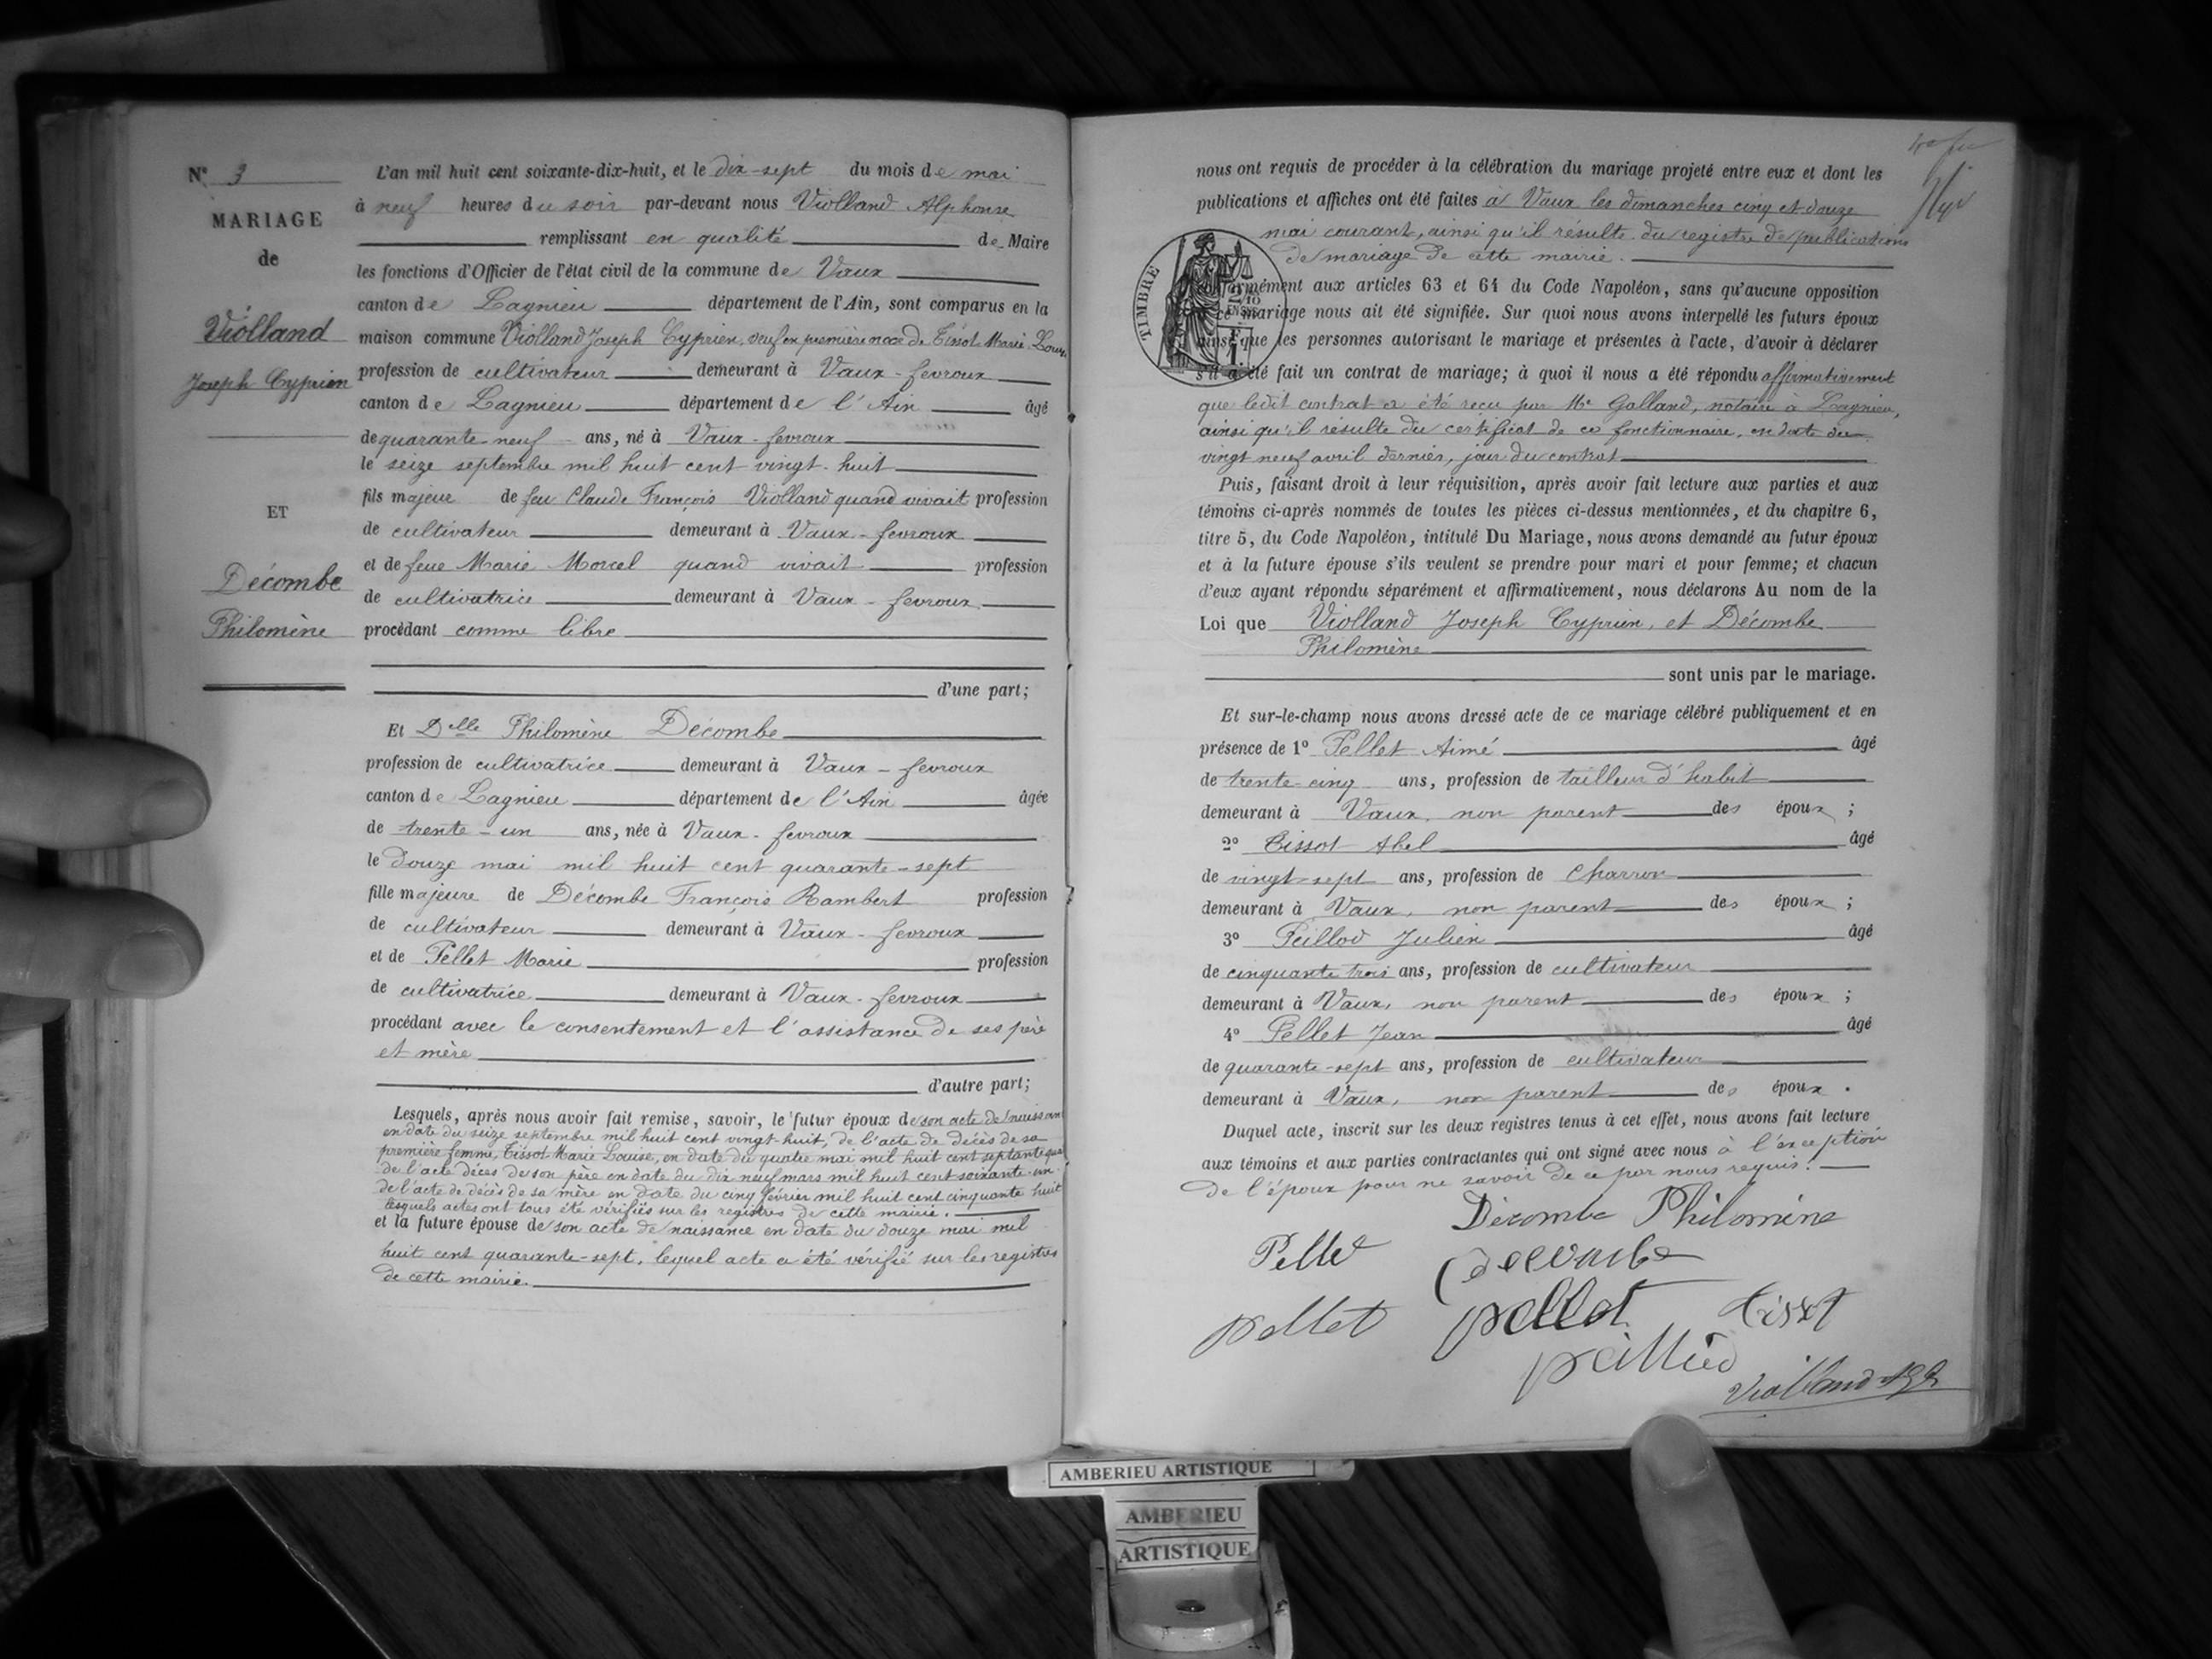 N° 3
MARIAGE
de
Violland
Joseph Cyprien
ET
Décombe
Philomène
L'an mil huit cent soixante-dix-huit, et le dix-sept du mois de mai
à neuf heures du soir par-devant nous Violland Alphonse
remplissant en qualité de Maire
les fonctions d'Officier de l'état civil de la commune de Vaux
canton de Lagnieu département de l'Ain, sont comparus en la
maison commune Violland Joseph Cyprien, veuf en première noce de Tissot Marie Louise
profession de cultivateur demeurant à Vaux-fevroux
canton de Lagnieu département de l'Ain âgé
de quarante-neuf ans, né à Vaux-fevroux
le seize septembre mil huit cent vingt-huit
fils majeur de feu Claude François Violland quand vivait profession
de cultivateur demeurant à Vaux-fevroux
et de feue Marie Morcel quand vivait profession
de cultivatrice demeurant à Vaux-fevroux
procédant comme libre
d'une part;
Et Delle Philomène Décombe
profession de cultivatrice demeurant à Vaux-fevroux
canton de Lagnieu département de l'Ain âgée
de trente-un ans, née à Vaux-fevroux
le douze mai mil huit cent quarante-sept
fille majeure de Décombe François Rambert profession
de cultivateur demeurant à Vaux-fevroux
et de Pellet Marie profession
de cultivatrice demeurant à Vaux-fevroux
procédant avec le consentement et l'assistance de ses père
et mère
d'autre part;
Lesquels, après nous avoir fait remise, savoir, le futur époux de son acte de naissan
en date du seize septembre mil huit cent vingt-huit, de l'acte de décès de sa
première femme, Tissot Marie Louise, en date du quatre mai mil huit cent septante
de l'acte décès de son père en date du dix neuf mars mil huit cent soixante-un
de l'acte de décès de sa mère en date du cinq février mil huit cent cinquante huit
lesquels actes ont tous été vérifiés sur les registres de cette mairie.
et la future épouse de son acte de naissance en date du douze mai mil
huit cent quarante-sept, lequel acte a été vérifié sur les registres
de cette mairie.
nous ont requis de procéder à la célébration du mariage projeté entre eux et dont les
publications et affiches ont été faites à Vaux les dimanches cinq et douze
mai courant, ainsi qu'il résulte du registre de publications
de mariage de cette mairie.
TIMBRE
conformément aux articles 63 et 64 du Code Napoléon, sans qu'aucune opposition
à ce mariage nous ait été signifiée. Sur quoi nous avons interpellé les futurs époux
ainsi que les personnes autorisant le mariage et présentes à l'acte, d'avoir à déclarer
s'il a été fait un contrat de mariage; à quoi il nous a été répondu affirmativement
que ledit contrat a été reçu par Me Galland, notaire à Lagnieu,
ainsi qu'il résulte du certificat de ce fonctionnaire, en date du
vingt neuf avril dernier, jour du contrat
Puis, faisant droit à leur réquisition, après avoir fait lecture aux parties et aux
témoins ci-après nommés de toutes les pièces ci-dessus mentionnées, et du chapitre 6,
titre 5, du Code Napoléon, intitulé Du Mariage, nous avons demandé au futur époux
et à la future épouse s'ils veulent se prendre pour mari et pour femme; et chacun
d'eux ayant répondu séparément et affirmativement, nous déclarons Au nom de la
Loi que Violland Joseph Cyprien, et Décombe
Philomène
sont unis par le mariage.
Et sur-le-champ nous avons dressé acte de ce mariage célébré publiquement et en
présence de 1° Pellet Aimé âgé
de trente-cinq ans, profession de tailleur d'habit
demeurant à Vaux, non parent des époux ;
2° Tissot Abel âgé
de vingt-sept ans, profession de charron
demeurant à Vaux, non parent des époux ;
3° Peillod Julien âgé
de cinquante trois ans, profession de cultivateur
demeurant à Vaux, non parent des époux ;
4° Pellet Jean âgé
de quarante-sept ans, profession de cultivateur
demeurant à Vaux, non parent des époux .
Duquel acte, inscrit sur les deux registres tenus à cet effet, nous avons fait lecture
aux témoins et aux parties contractantes qui ont signé avec nous à l'exception
de l'époux pour ne savoir de ce par nous requis.
Décombe Philomène
Pellet decombe
pellet pellet tissot
peillod
Violland
AMBERIEU ARTISTIQUE
AMBERIEU
ARTISTIQUE